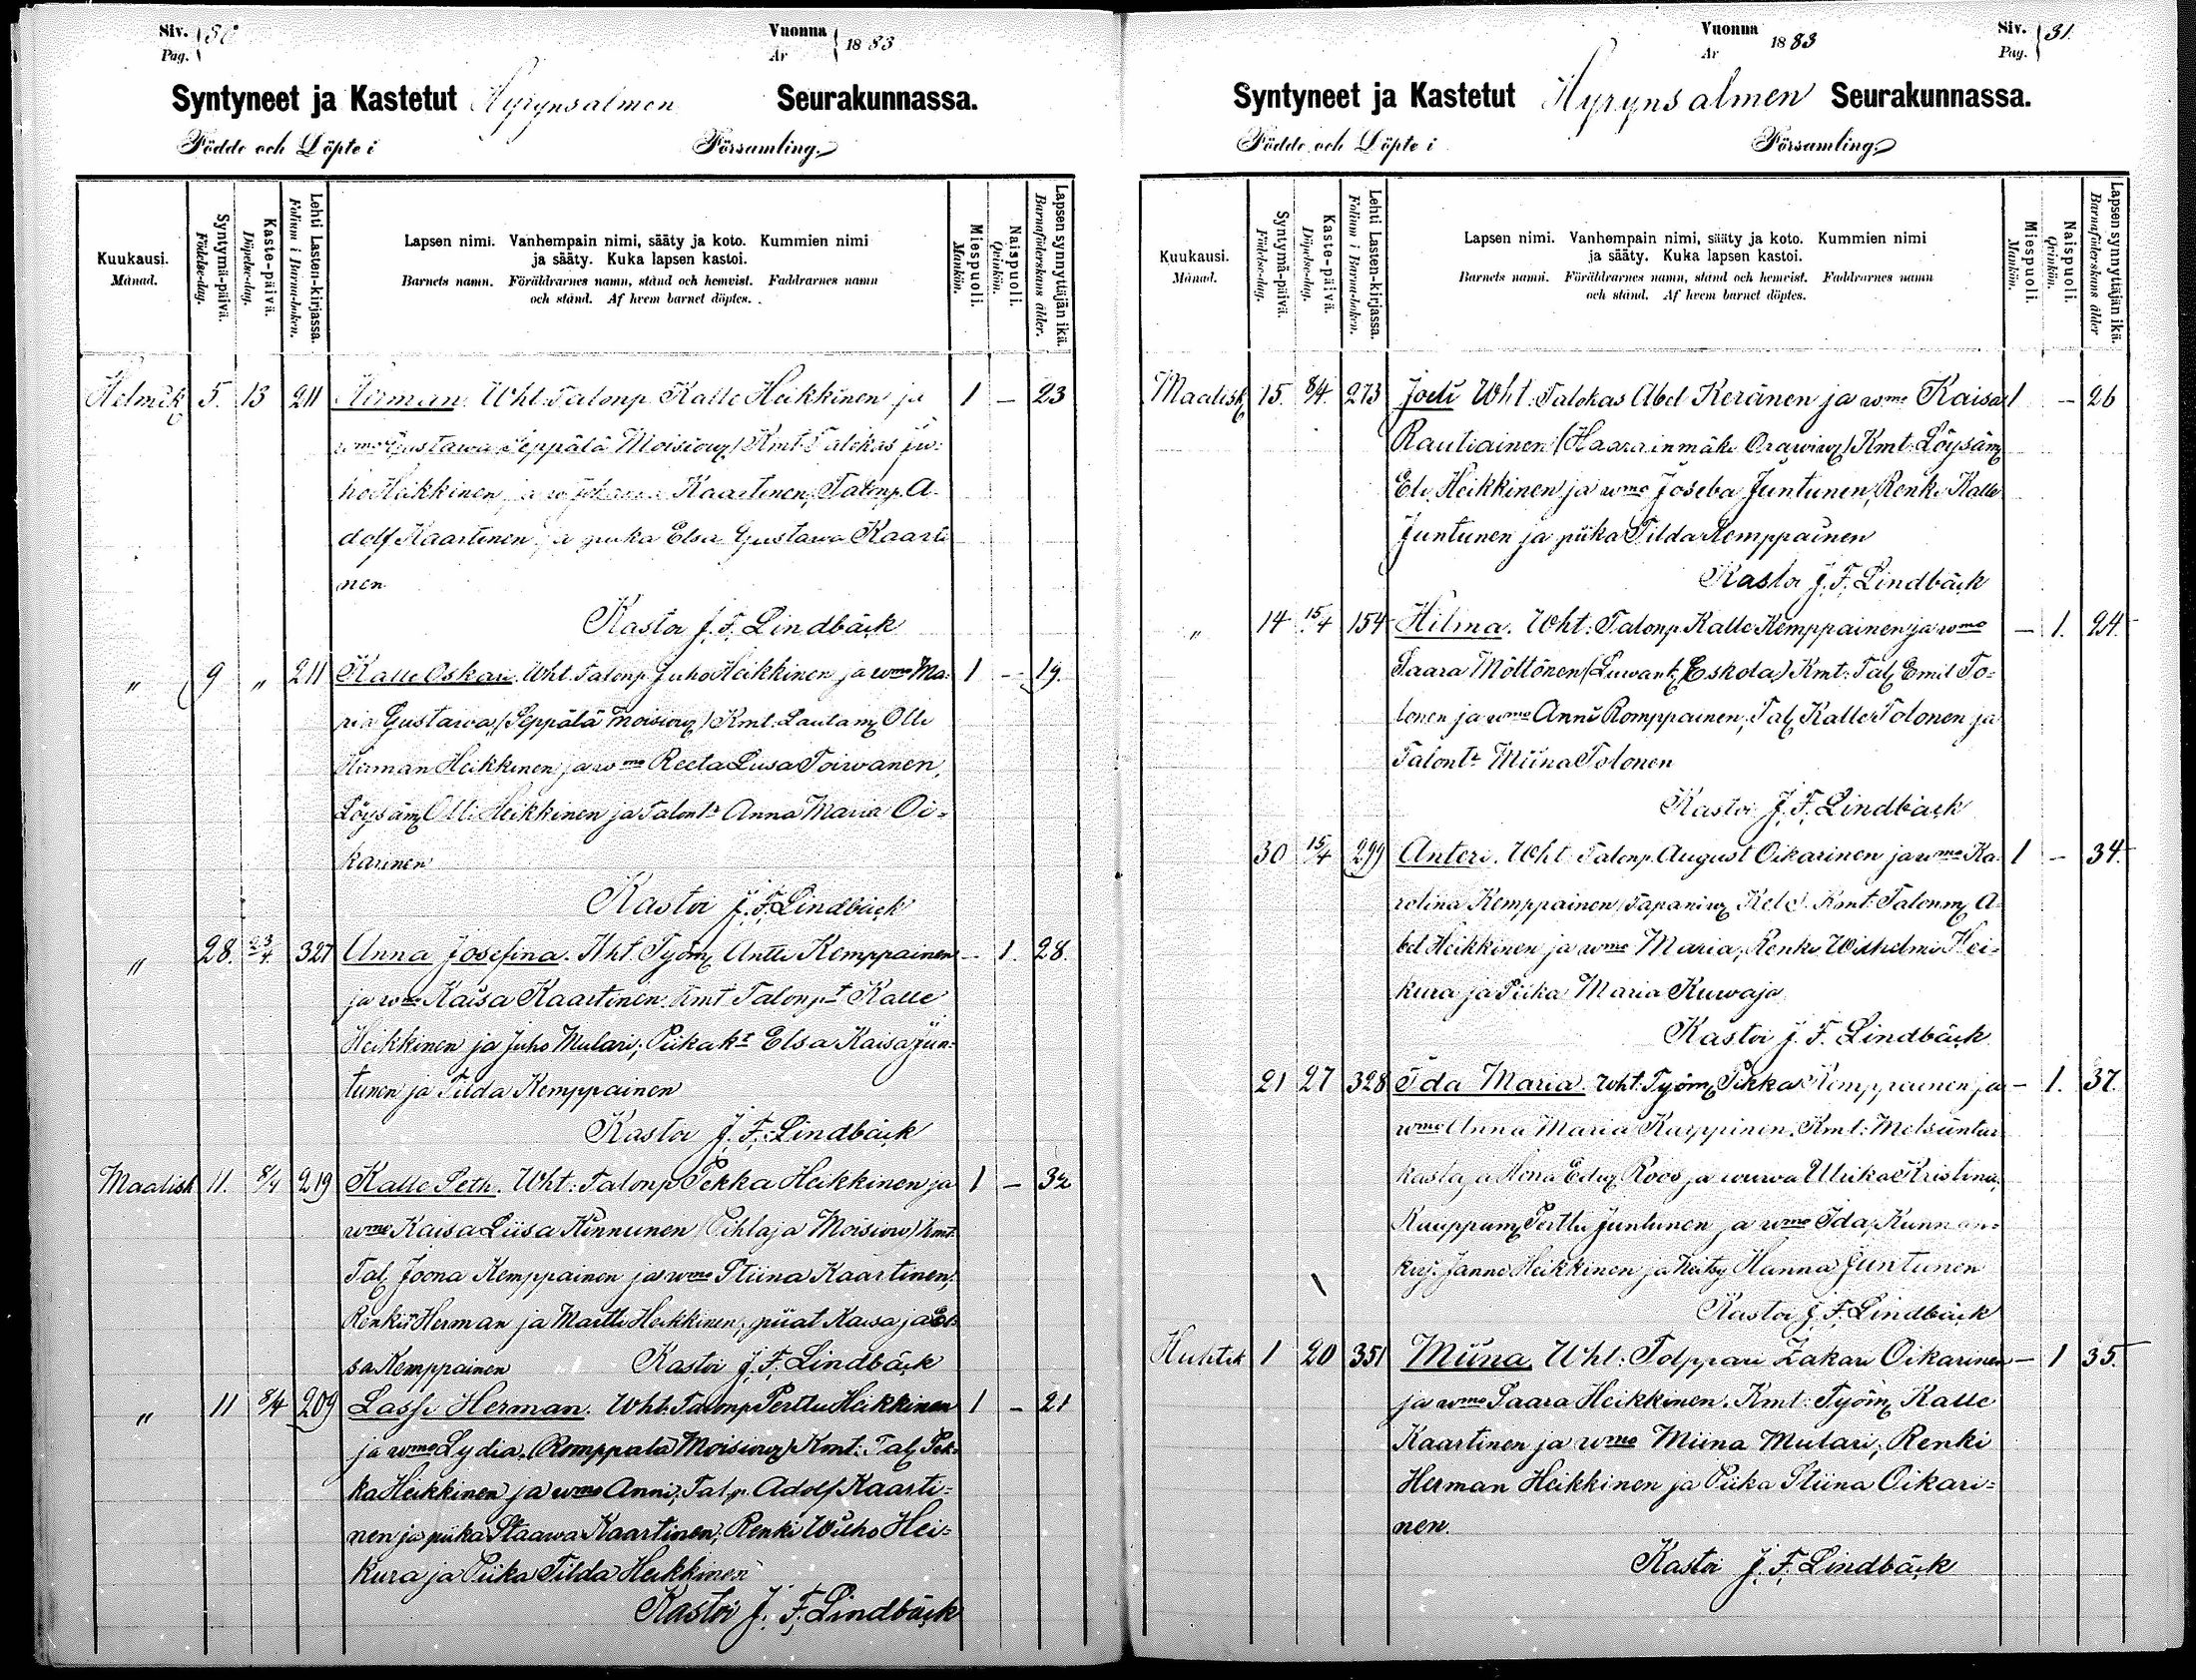 Siv. 30
Pag.
Vuonna
År 1883
Syntyneet ja Kastetut Hyrynsalmen Seurakunnassa.
Födde och Döpte i Församling.
Kuukausi.
Månad.
Syntymä-päivä.
Födelse-dag.
Kaste-päivä.
Döpelse-dag.
Lehti Lasten-kirjassa.
Folium i Barna-boken.
Lapsen nimi. Vanhempain nimi, sääty ja koto. Kummien nimi
ja sääty. Kuka lapsen kastoi.
Barnets namn. Föräldrarnes namn, stånd och hemvist. Faddrarnes namn
och stånd. Af hvem barnet döptes.
Miespuoli.
Mankön.
Naispuoli.
Qvinkön.
Lapsen synnyttäjän ikä.
Barnaföderskans ålder.
Helmik 5. 13 211 Herman. Wht. Talonp. Kalle Heikkinen ja 1 – 23
wmo Gustawa (Seppälä Moisiow) Kmt. Talokas Ju-
ho Heikkinen ja w Johanna Kaartinen, Talonp. A-
dolf Kaartinen ja piika Elsa Gustawa Kaarti
nen
Kastoi J. F. Lindbäck
„ 9 „ 211 Kalle Oskari. Wht. Talonp. Juho Heikkinen ja wmo Ma- 1 – 19.
ria Gustawa (Seppälä Moisiow) Kmt. Lautam Olli
Herman Heikkinen ja wmo Reeta Liisa Toiwanen,
Löysäm Olli Heikkinen ja Talont. Anna Maria Oi-
karinen
Kastoi J. F. Lindbäck
„ 28. 23/4. 327 Anna Josefina. Wht. Työm Antti Kemppainen – 1. 28.
ja wmo Kaisa Kaartinen Kmt Talonpt Kalle
Heikkinen ja Juho Mulari, Piikakt Elsa Kaisa Jun-
tunen ja Tilda Kemppainen
Kastoi J. F. Lindbäck
Maalisk 11. 8/4 219 Kalle Seth. Wht: Talonp Pekka Heikkinen ja 1 – 32
wmo Kaisa Liisa Kinnunen (Pihlaja Moisiow) Kmt.
Tal Joona Kemppainen ja wmo Stiina Kaartinen,
Renkit Herman ja Martti Heikkinen, piiat Kaisa ja El-
sa Kemppainen Kastoi J. F. Lindbäck
„ 11 8/4 209 Lassi Herman. Wht. Talonp Perttu Heikkinen 1 – 21
ja wmo Lydia. (Romppala Moisiow) Kmt: Tal Pek-
ka Heikkinen ja wmo Anni, Talp. Adolf Kaarti-
nen ja piika Staawa Kaartinen, Renki Wilho Hei-
kura ja Piika Tilda Heikkinen
Kastoi J. F. Lindbäck
Vuonna
År 1883
Siv. 31.
Pag.
Syntyneet ja Kastetut Hyrynsalmen Seurakunnassa.
Födde och Döpte i Församling.
Kuukausi.
Månad.
Syntymä-päivä.
Födelse-dag.
Kaste-päivä.
Döpelse-dag.
Lehti Lasten-kirjassa.
Folium i Barna-boken.
Lapsen nimi. Vanhempain nimi, sääty ja koto. Kummien nimi
ja sääty. Kuka lapsen kastoi.
Barnets namn. Föräldrarnes namn, stånd och hemvist. Faddrarnes namn
och stånd. Af hvem barnet döptes.
Miespuoli.
Mankön.
Naispuoli.
Qvinkön.
Lapsen synnyttäjän ikä.
Barnaföderskans ålder
Maalisk 15. 8/4. 273 Joeli Wht. Talokas Abel Keränen ja wmo Kaisa 1 – 26
Rautiainen (Haarainmäki Orawiw) Kmt. Löysäm
Eli Heikkinen ja wmo Joseba Juntunen, Renki Kalle
Juntunen ja piika Tilda Kemppainen
Kastoi J. F. Lindbäck
„ 14 15/4 154 Hilma. Wht: Talonp. Kalle Kemppainen ja wmo – 1. 24.
Saara Möttönen (Luwank. Eskola) Kmt: Tal Emil To-
lonen ja wmo Anni Romppainen, Tal Kalle Tolonen ja
Talont. Miina Tolonen
Kastoi J. F. Lindbäck
30 15/4 299 Anteri. Wht Talonp. August Oikarinen ja wmo Ka- 1 – 34.
rolina Kemppainen Kmt. Talonm A-
bel Heikkinen ja wmo Maria, Renki Wilhelmi Hei-
kura ja Piika Maria Kuwaja
Kastoi J. F. Lindbäck
21 27 328 Ida Maria. Wht. Työm Pekka Kemppainen ja – 1. 37.
wmo Anna Maria Karppinen. Kmt: Metsäntar
kastaja Roos ja rouwa Ulrika Kristina,
Kauppam Perttu Juntunen ja wmo Ida, Kunnan-
kirj. Janne Heikkinen ja Neitsy Hanna Juntunen
Kastoi J. F. Lindbäck
Huhtik 1 20 351 Miina. Wht: Tolppari Zakari Oikarinen – 1 35.
ja wmo Saara Heikkinen. Kmt: Työm Kalle
Kaartinen ja wmo Miina Mulari, Renki
Herman Heikkinen ja Piika Stiina Oikari-
nen.
Kastoi J. F. Lindbäck